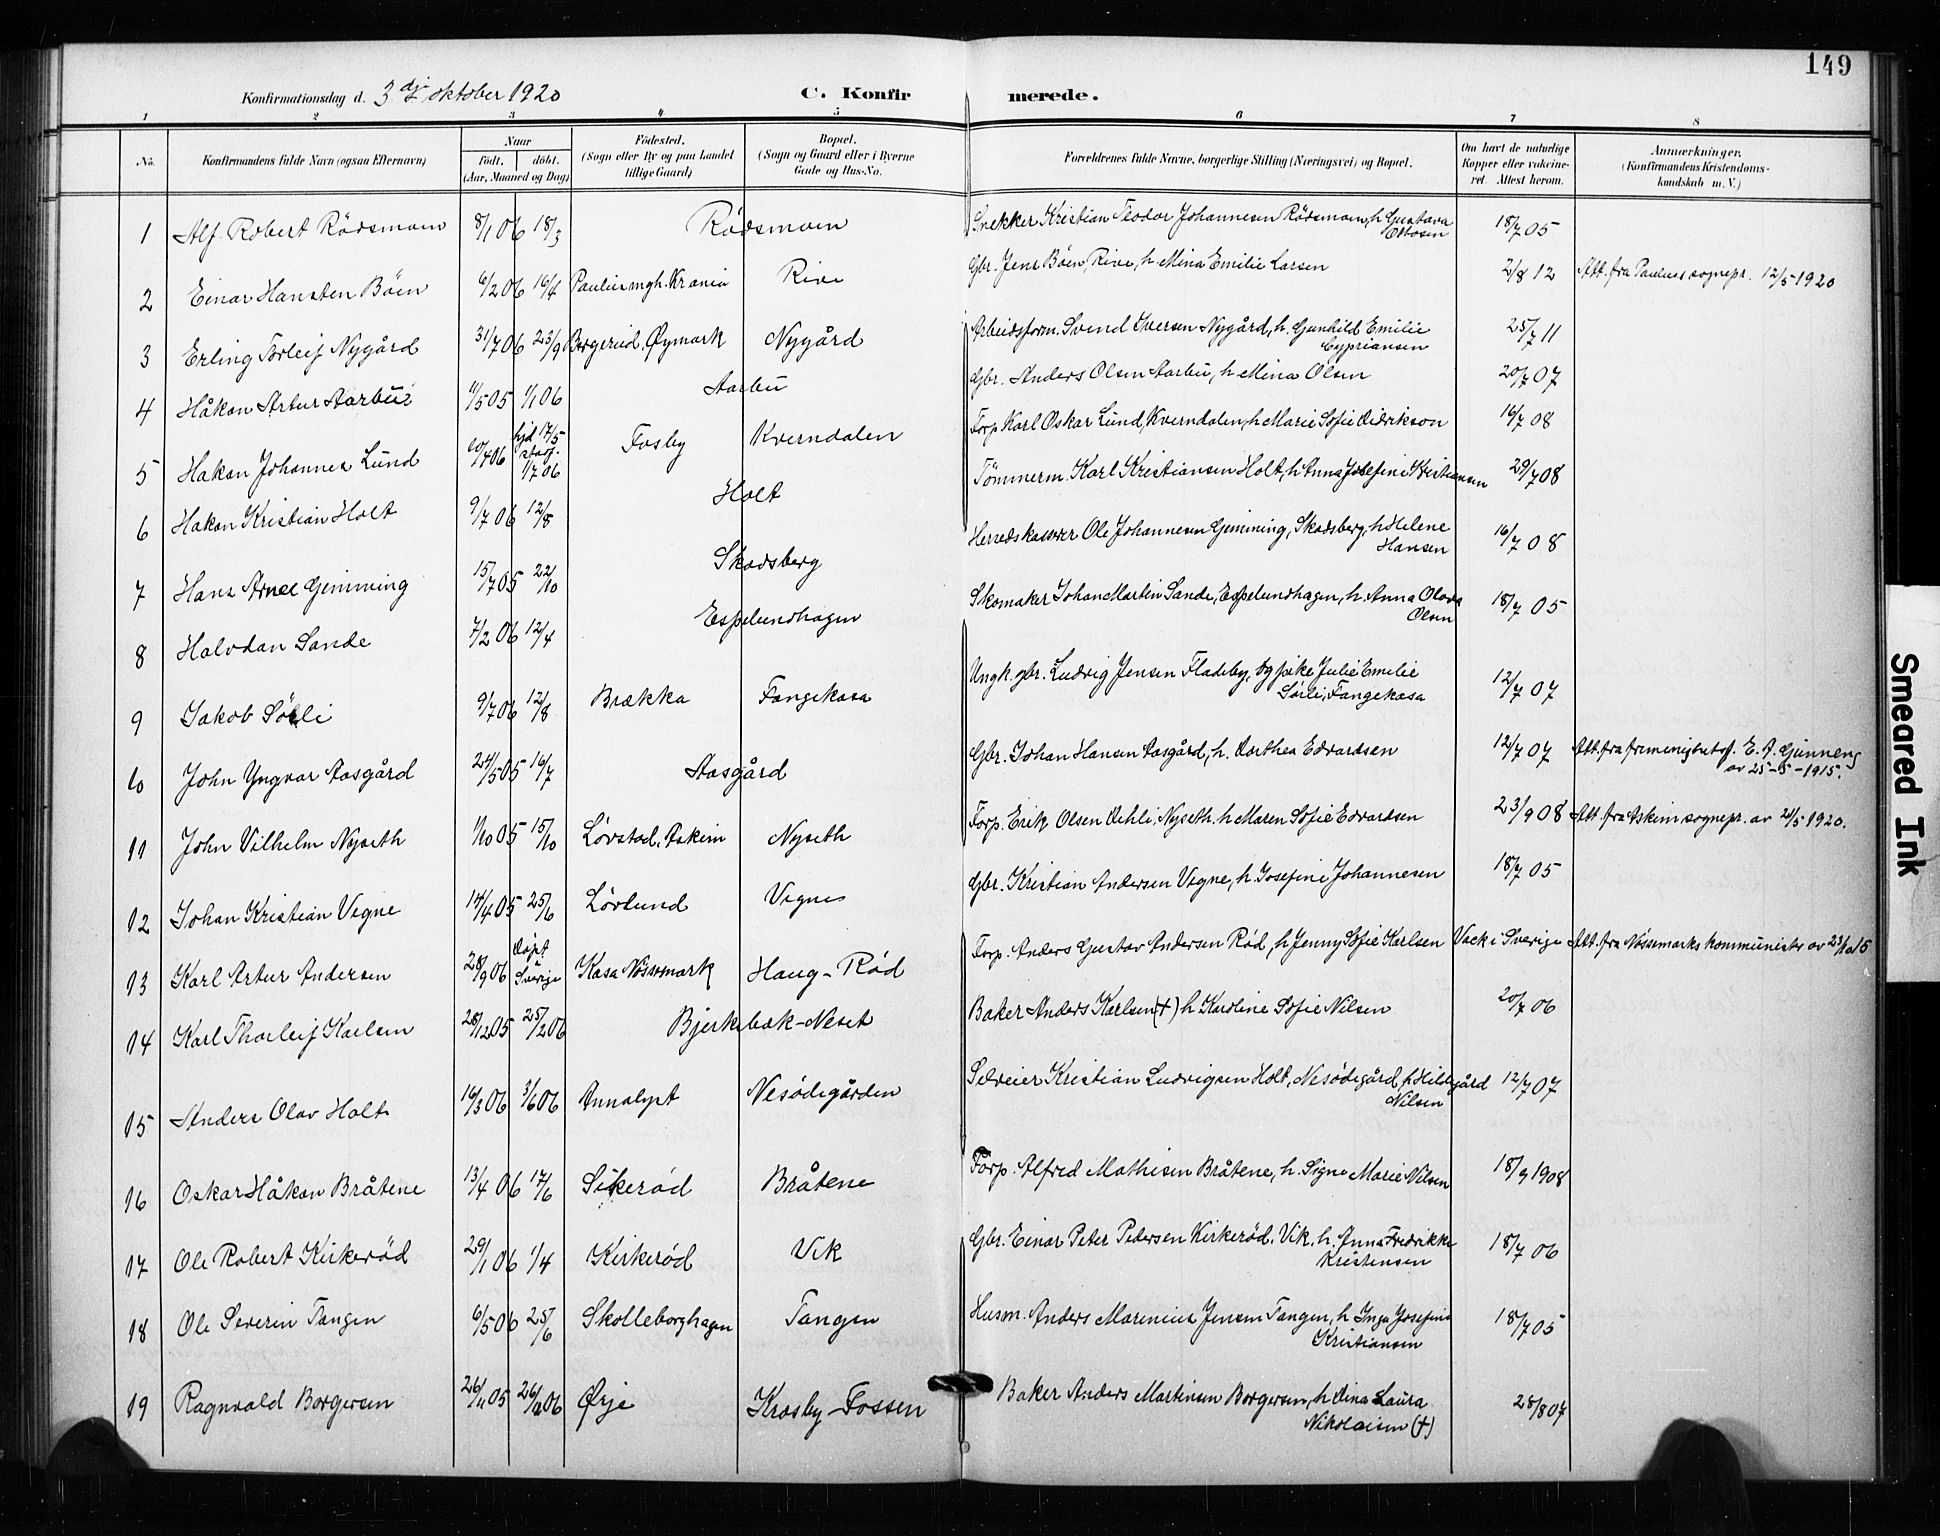 149
Konfirmationsdag d. 3dje oktober 1920
C. Konfirmerede.
1 2 3 4 5 6 7 8
No. Konfirmandens fulde Navn (ogsaa Efternavn) Naar født. døbt. (Aar, Maaned og Dag) Fødested. (Sogn eller By og paa Landet tillige Gaard) Bopæl. (Sogn og Gaard eller i Byerne Gade og Hus-No. Forældrenes fulde Navne, borgerlige Stilling (Næringsvei) og Bopæl. Om havt de naturlige Kopper eller vakcineret. Attest herom. Anmærkninger. (Konfirmandens Kristendomskundskab m. V.)
1 Alf Robert Rødsmoen 8/1 06 18/3 Rødsmoen Snekker Kristian Teodor Johannesen Rødsmoen, h Gustava 18/7 05
2 Einar Hansten Bøen 6/2 06 16/4 Paulusmgh. Krania Rive Gbr. Jens Bøen, Rive, h Mina Emilie Larsen 2/8 12 Att. fra Paulus sognepr. 12/5-1920
3 Erling Torleif Nygård 31/7 06 23/9 Borgerud, Øymark Nygård Arbeidsform. Svend Iversen Nygård, h. Gunhild Emilie Cypriansen 25/7 11
4 Håkon Artur Aarbu 11/5 05 1/1 06 Aarbu Gbr. Anders Olsen Aarbu, h Mina Olsen 20/7 07
5 Hakon Johannes Lund 20/4 06 hjd 17/5 stadf. 1/7 06 Fosby Kverndalen Torp. Karl Oskar Lund, Kverndalen, h Marie Sofie Didrikson 16/7 08
6 Hakon Kristian Holt 9/7 06 12/8 Holt Tømmerm. Karl Kristiansen Holt, h Anna Josefine Kristiansen 29/7 08
7 Hans Arnee Gimming 15/7 05 22/10 Skodsberg Herredskasserer Ole Johannesen Gimming, Skodsberg, h Helene Hansen 16/7 08
8 Halvdan Sande 7/2 06 12/4 Espelundhagen Skomaker Johan Martin Sande, Espelundhagen, h. Anna Olava Olsen 18/7 05
9 Jakob Sørli 9/7 06 12/8 Brækka Fangekasa Ungk. gbr. Ludvig Jensen Fladeby, og pike Julie Emilie Sørli, Fangekasa 12/7 07
10 John Yngvar Aasgård 24/5 05 16/7 Aasgård Gbr. Johan Hansen Aasgård, h. Dorthea Edvardsen 12/7 07 Att. fra frimenighetsf. E. A. Gunneng av 25-5-1915.
11 John Vilhelm Nyseth 1/10 05 15/10 Løvstad, Askim Nyseth Forp. Erik Olsen Dehli, Nyseth. h Maren Sofie Edvardsen 23/9 08 Att. fra Askim sognepr. av 21/5 1920.
12 Johan Kristian Vigne 14/4 05 25/6 Lövlund Vignes Gbr. Kristian Andersen Vigne, h. Josefine Johannesen 18/7 05
13 Karl Artur Andersen 28/9 06 Døpt i Sverige Kasa Nøssemark Haug-Rød Forp. Anders Gustav Andersen Rød, h Jenny Sofie Karlsen Vack i Sverige Att. fra Nøssemarks kommunistr av
14 Karl Thorleif Karlsen 28/12 05 25/2 06 Bjerkebæk-Neset Baker Anders Karlsen (+) h Karoline Sofie Nilsen 20/7 06
15 Anders Olav Holt 16/3 06 3/6 06 Annalyst Nesødegården Selveier Kristian Ludvigsen Holt, Nesødegård, h Hildegård Nilsen 12/7 07
16 Oskar Håkon Bråtene 13/4 06 17/6 Søkerød Bråtene Forp. Alfred Mathisen Bråtene, h. Signe Marie Nilsen 18/9 1908
17 Ole Robert Kirkerød 29/1 06 1/4 Kirkerød Vik Gbr. Einar Peter Pedersen Kirkerød, Vik, h. Anna Fredrikke Kristensen 18/7 06
18 Ole Severin Tangen 6/5 06 25/6 Skolleborghagen Tangen Husm. Anders Marinius Jensen Tangen, h Inga Josefine Kristiansen 18/7 05
19 Ragnvald Borgersen 26/11 05 Ørje Krosby-Fossen Baker Anders Martinsen Borgersen, h Dina Laura Nikolaisen (+) 28/8 07
Smeared Ink